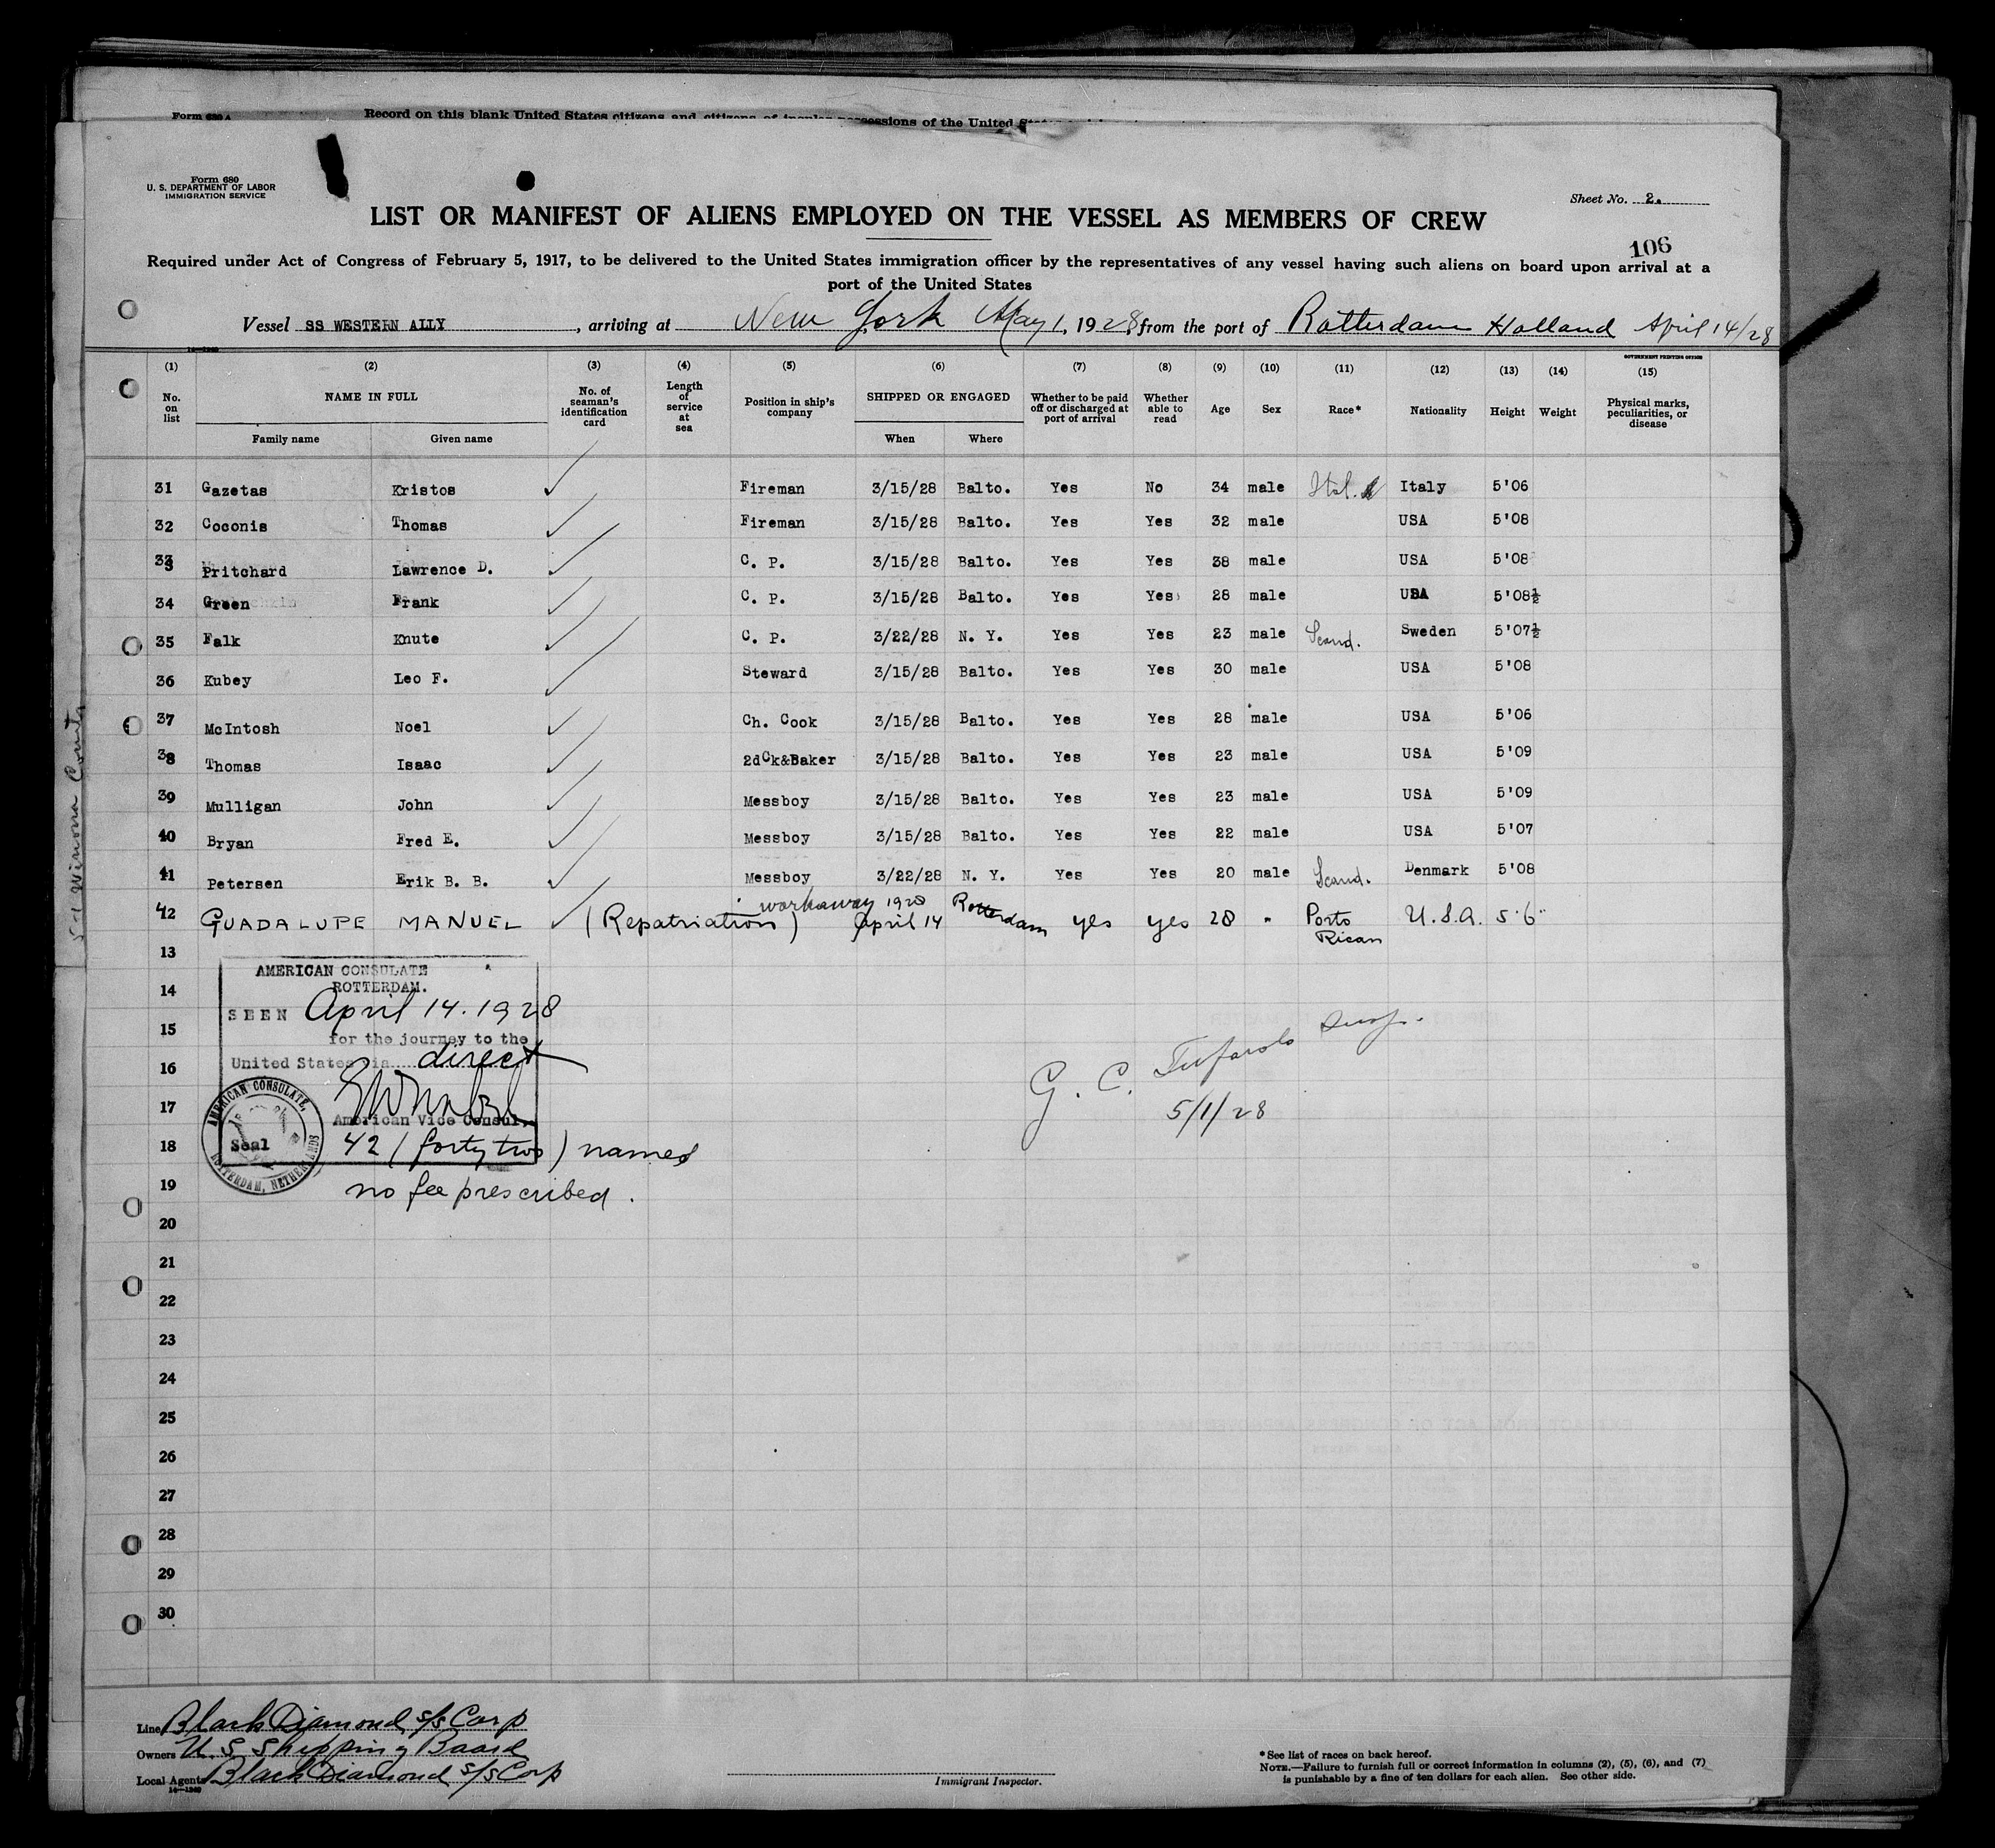 Form 680 A
Record on this blank United States citizens and citizens of insular possessions of the United
Form 680
U. S. DEPARTMENT OF LABOR
IMMIGRATION SERVICE
Sheet No. 2.
LIST OR MANIFEST OF ALIENS EMPLOYED ON THE VESSEL AS MEMBERS OF CREW
106
Required under Act of Congress of February 5, 1917, to be delivered to the United States immigration officer by the representatives of any vessel having such aliens on board upon arrival at a
port of the United States
Vessel SS WESTERN ALLY, arriving at New York May 1, 1928, from the port of Rotterdam Holland April 14/28
GOVERNMENT PRINTING OFFICE
(1) (2) (3) (4) (5) (6) (7) (8) (9) (10) (11) (12) (13) (14) (15)
No. on list NAME IN FULL No. of seaman's identification card Length of service at sea Position in ship's company SHIPPED OR ENGAGED Whether to be paid off or discharged at port of arrival Whether able to read Age Sex Race* Nationality Height Weight Physical marks, peculiarities, or disease
Family name Given name When Where
31 Gazetas Kristos Fireman 3/15/28 Balto. Yes No 34 male Ital. Italy 5'06
32 Coconis Thomas Fireman 3/15/28 Balto. Yes Yes 32 male USA 5'08
33 Pritchard Lawrence D. C. P. 3/15/28 Balto. Yes Yes 38 male USA 5'08
34 Green Frank C. P. 3/15/28 Balto. Yes Yes 28 male USA 5'08½
35 Falk Knute C. P. 3/22/28 N. Y. Yes Yes 23 male Scand. Sweden 5'07½
36 Kubey Leo F. Steward 3/15/28 Balto. Yes Yes 30 male USA 5'08
37 McIntosh Noel Ch. Cook 3/15/28 Balto. Yes Yes 28 male USA 5'06
38 Thomas Isaac 2dCk&Baker 3/15/28 Balto. Yes Yes 23 male USA 5'09
39 Mulligan John Messboy 3/15/28 Balto. Yes Yes 23 male USA 5'09
40 Bryan Fred E. Messboy 3/15/28 Balto. Yes Yes 22 male USA 5'07
41 Petersen Erik B. B. Messboy 3/22/28 N. Y. Yes Yes 20 male Scand. Denmark 5'08
workaway 1928
42 GUADALUPE MANUEL (Repatriation) April 14 Rotterdam yes yes 28 " Porto Rican U.S.A. 5'6"
13
AMERICAN CONSULATE
ROTTERDAM.
14
SEEN April 14. 1928
15
for the journey to the
United States via direct
16
17
American Vice Consul.
AMERICAN CONSULATE, ROTTERDAM, NETHERLANDS
Seal
18
42 (forty two) names
19
no fee prescribed.
G. C. Insp.
5/1/28
20
21
22
23
24
25
26
27
28
29
30
Winona County
Line Black Diamond s/s Corp
Owners U. S. Shipping Board
Local Agents Black Diamond s/s Corp
14—1240
Immigrant Inspector.
*See list of races on back hereof.
NOTE.—Failure to furnish full or correct information in columns (2), (5), (6), and (7)
is punishable by a fine of ten dollars for each alien. See other side.